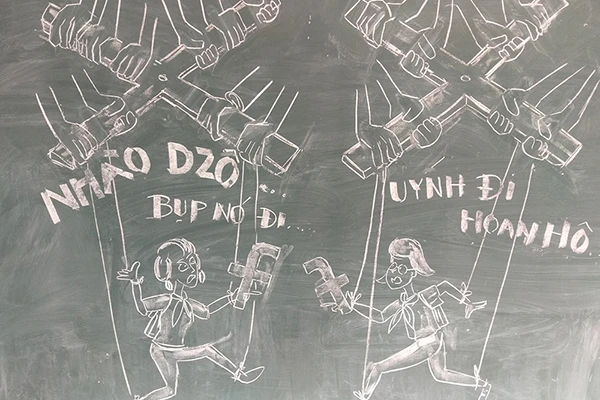 NHÀO DZÔ...
BUP NÓ ĐI...
UYNH ĐI
HOAN HÔ
f f